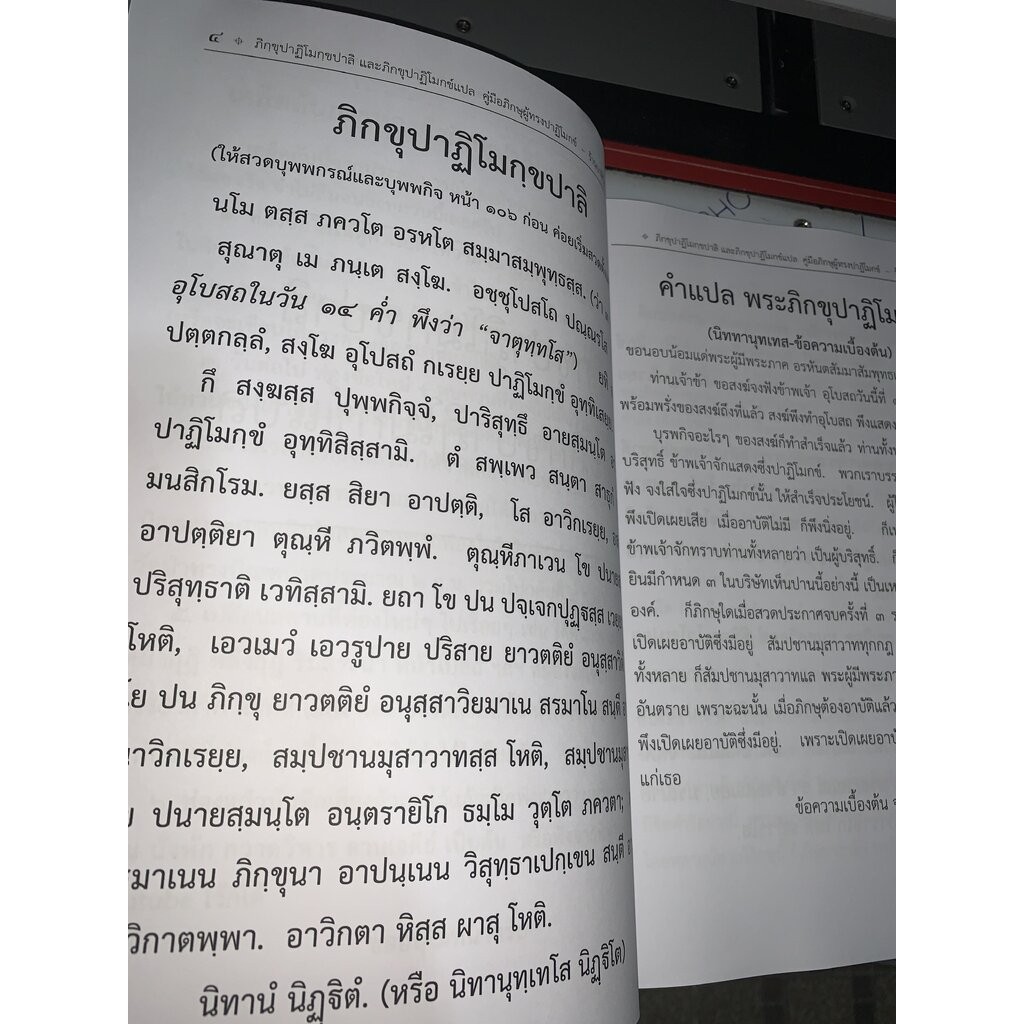 ๔ ภิกฺขุปาฏิโมกฺขปาลิ และภิกขุปาฏิโมกข์แปล คู่มือภิกษุผู้ทรงปาฏิโมกข์ –
ภิกขุปาฏิโมกฺขปาลิ
(ให้สวดบุพพกรณ์และบุพพกิจ หน้า ๑๐๖ ก่อน ค่อยเริ่มสวด
นโม ตสฺส ภควโต อรหโต สมฺมาสมฺพุทฺธสฺส. (ว่า
สุณาตุ เม ภนฺเต สงฺโฆ. อชฺชุโปสโถ ปณฺณรโส
อุโบสถในวัน ๑๔ ค่ำ พึงว่า “จาตุทฺทโส”) ยทิ
ปตฺตกลฺลํ, สงฺโฆ อุโปสถํ กเรยฺย ปาฏิโมกฺขํ อุทฺทิเสยฺย.
กึ สงฺฆสฺส ปุพฺพกิจฺจํ, ปาริสุทฺธึ อายสฺมนฺโต
ปาฏิโมกฺขํ อุทฺทิสิสฺสามิ. ตํ สพฺเพว สนฺตา
มนสิกโรม. ยสฺส สิยา อาปตฺติ, โส อาวิกเรยฺย,
อาปตฺติยา ตุณฺหี ภวิตพฺพํ. ตุณฺหีภาเวน โข
ปริสุทฺธาติ เวทิสฺสามิ. ยถา โข ปน ปจฺเจกปุฏฺฐสฺส
โหติ, เอวเมวํ เอวรูปาย ปริสาย ยาวตติยํ
ปน ภิกฺขุ ยาวตติยํ อนุสฺสาวิยมาเน สรมาโน สนฺตึ
าวิกเรยฺย, สมฺปชานมุสาวาทสฺส โหติ,
ปนายสฺมนฺโต อนฺตรายิโก ธมฺโม วุตฺโต ภควตา;
รมาเนน ภิกฺขุนา อาปนฺเนน วิสุทฺธาเปกฺเขน สนฺตี
วิกาตพฺพา. อาวิกตา หิสฺส ผาสุ โหติ.
นิทานํ นิฏฺฐิตํ. (หรือ นิทานุทฺเทโส นิฏฺฐิโต)
ภิกขุปาฏิโมกฺขปาลิ และภิกขุปาฏิโมกข์แปล คู่มือภิกษุผู้ทรงปาฏิโมกข์ –
คำแปล พระภิกขุปาฏิโม
(นิททานุทเทส-ข้อความเบื้องต้น)
ขอนอบน้อมแด่พระผู้มีพระภาค อรหันตสัมมาสัมพุทธ
ท่านเจ้าข้า ขอสงฆ์จงฟังข้าพเจ้า อุโบสถวันนี้ที่
พร้อมพรั่งของสงฆ์ถึงที่แล้ว สงฆ์พึงทำอุโบสถ พึงแสดง
บุรพกิจอะไรๆ ของสงฆ์ก็ทำสำเร็จแล้ว ท่านทั้ง
บริสุทธิ์ ข้าพเจ้าจักแสดงซึ่งปาฏิโมกข์. พวกเราบรร
ฟัง จงใส่ใจซึ่งปาฏิโมกข์นั้น ให้สำเร็จประโยชน์. ผู้
พึงเปิดเผยเสีย เมื่ออาบัติไม่มี ก็พึงนิ่งอยู่. ก็
ข้าพเจ้าจักทราบท่านทั้งหลายว่า เป็นผู้บริสุทธิ์.
ยินมีกำหนด ๓ ในบริษัทเห็นปานนี้อย่างนี้ เป็นเห
องค์. ก็ภิกษุใดเมื่อสวดประกาศจบครั้งที่ ๓
เปิดเผยอาบัติซึ่งมีอยู่ สัมปชานมุสาวาททุกกฏ
ทั้งหลาย ก็สัมปชานมุสาวาทแล พระผู้มีพระภา
อันตราย เพราะฉะนั้น เมื่อภิกษุต้องอาบัติแล้ว
พึงเปิดเผยอาบัติซึ่งมีอยู่. เพราะเปิดเผยอาบั
แก่เธอ
ข้อความเบื้องต้น